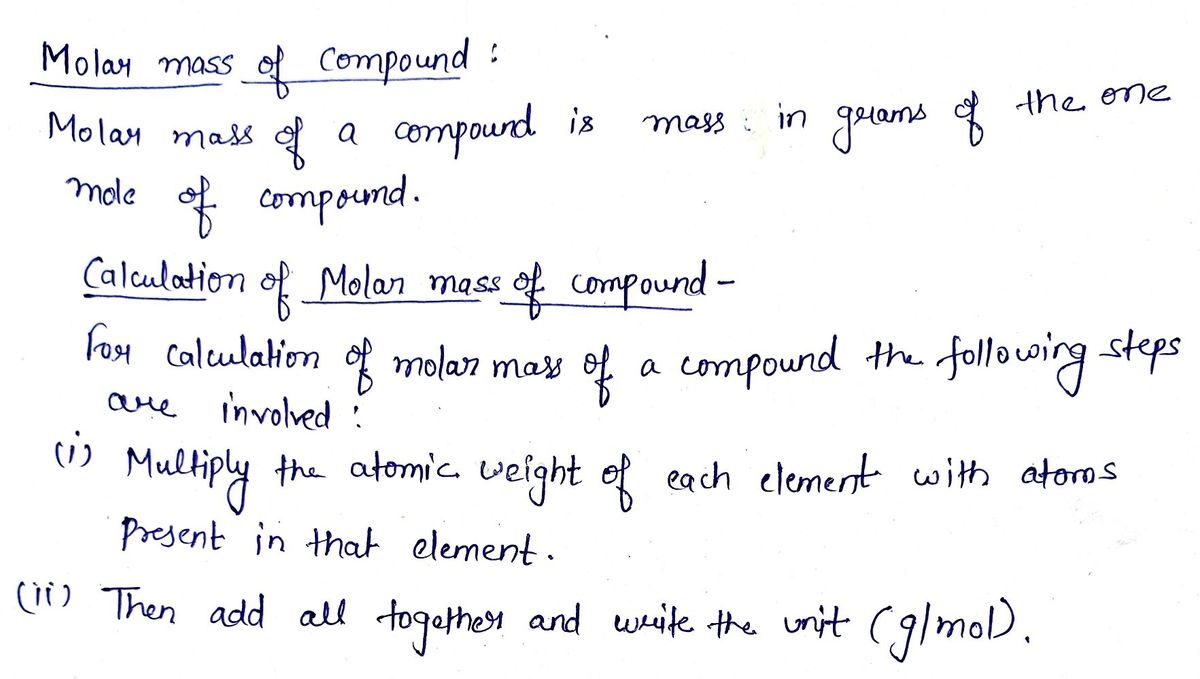 Molar mass of Compound :
Molar mass of a compound is mass in grams of the one
mole of compound.
Calculation of Molar mass of compound -
For calculation of molar mass of a compound the following steps
are involved :
(i) Multiply the atomic weight of each element with atoms
Present in that element.
(ii) Then add all together and write the unit (g/mol).